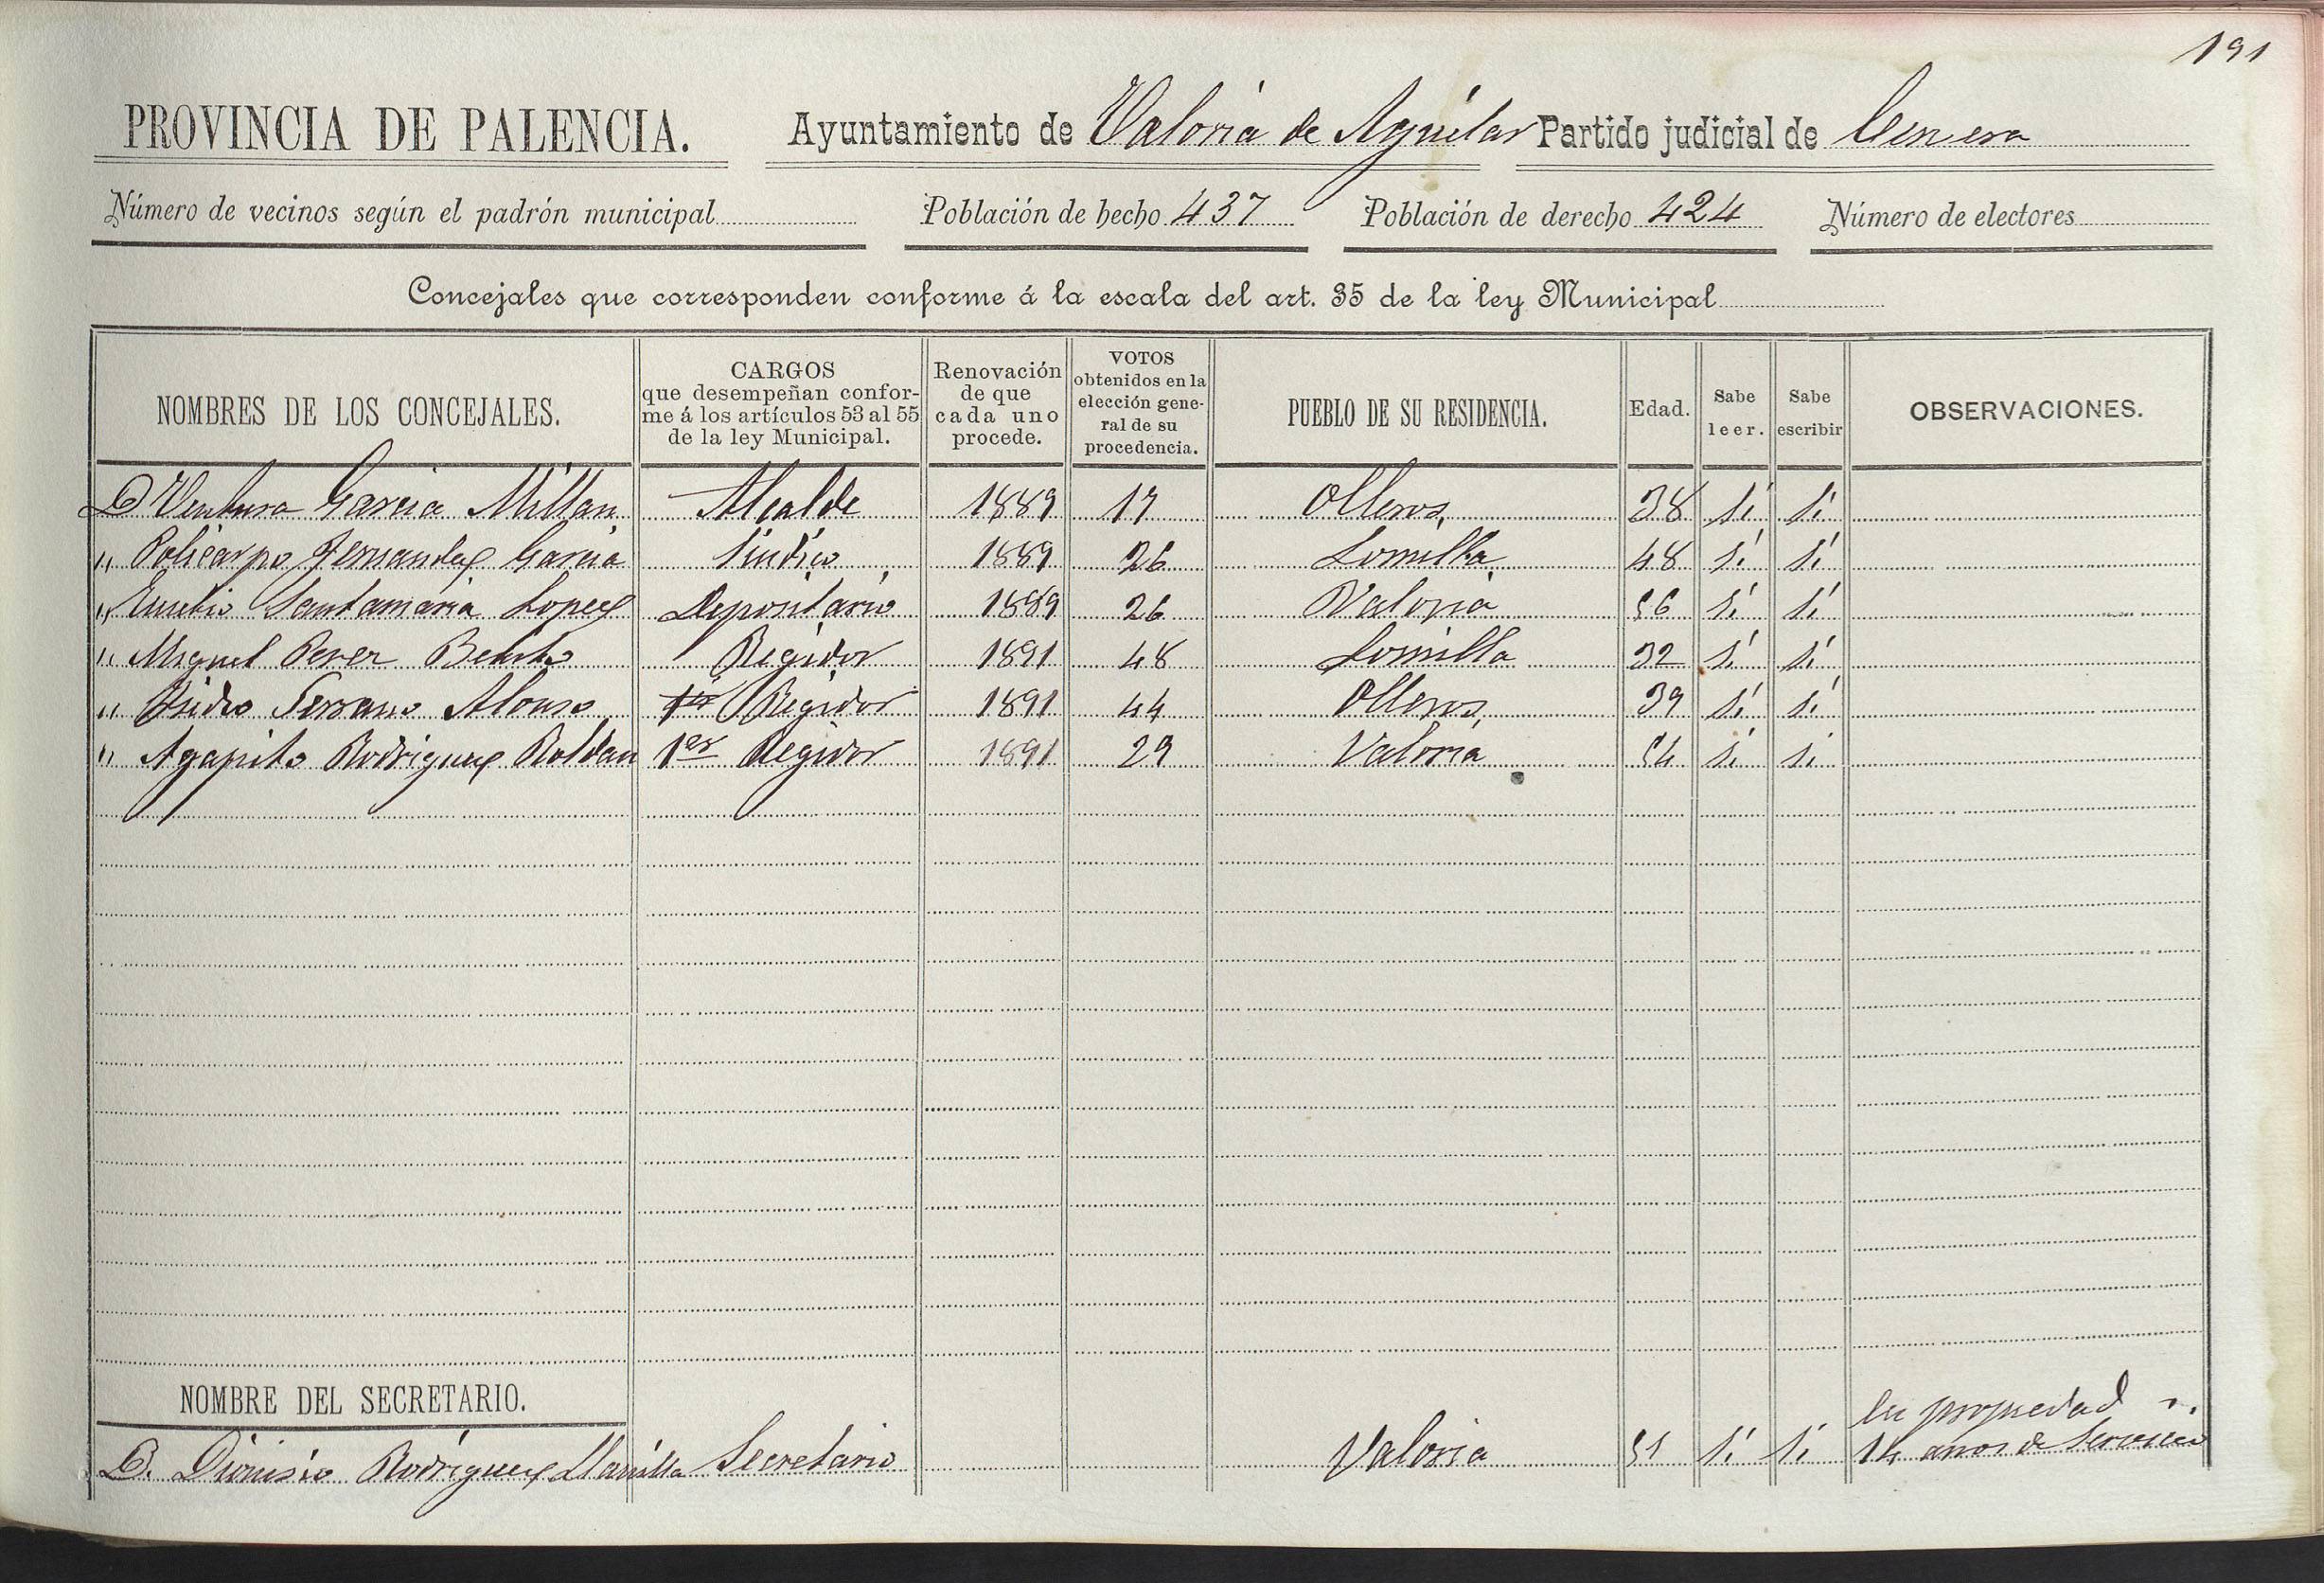 191
PROVINCIA DE PALENCIA. Ayuntamiento de Valoria de Aguilar Partido judicial de Cervera
Número de vecinos según el padrón municipal Población de hecho 437 Población de derecho 424 Número de electores
Concejales que corresponden conforme á la escala del art. 35 de la ley Municipal
NOMBRES DE LOS CONCEJALES. CARGOS que desempeñan conforme á los artículos 53 al 55 de la ley Municipal. Renovación de que cada uno procede. VOTOS obtenidos en la elección general de su procedencia. PUEBLO DE SU RESIDENCIA. Edad. Sabe leer. Sabe escribir OBSERVACIONES.
D Ventura Garcia Millan Alcalde 1889 17 Olleros 38 Si Si
" Policarpo Fernandez Garcia Sindico 1889 26 Lomilla 48 Si Si
" Eusebio Santamaria Lopez Depositario 1889 26 Valoria 56 Si Si
" Miguel Perez Benito Regidor 1891 48 Lomilla 32 Si Si
" Isidro Serrano Alonso Regidor 1891 44 Olleros 39 Si Si
" Agapito Rodriguez Roldan 1er Regidor 1891 29 Valoria 54 Si Si
NOMBRE DEL SECRETARIO.
D. Dionisio Rodriguez Llanilla Secretario Valoria 51 Si Si En propiedad 14 años de servicio